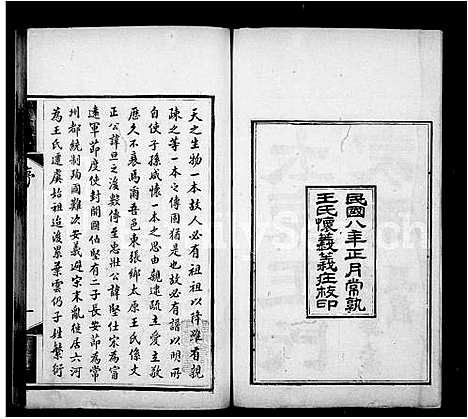 民國八年正月常孰
王氏懷義義莊校印
天之生物一本故人必有祖祖以降雖有親
疎之等一本之傳固有故必有譜以明所
自使子孫咸懷一本之思由親逮疏主愛主敬
歷久不衰焉爾吾邑東張鄉太原王氏係文
正公諱旦之後數傳至忠壯公諱堅仕宋為甯
遠軍節度使封開國伯堅有二子長安節為常
州都統制殉國難次安義避宋末亂徙居六河
為王氏遷虞始祖迨後累葉雲仍子姓繁衍
序